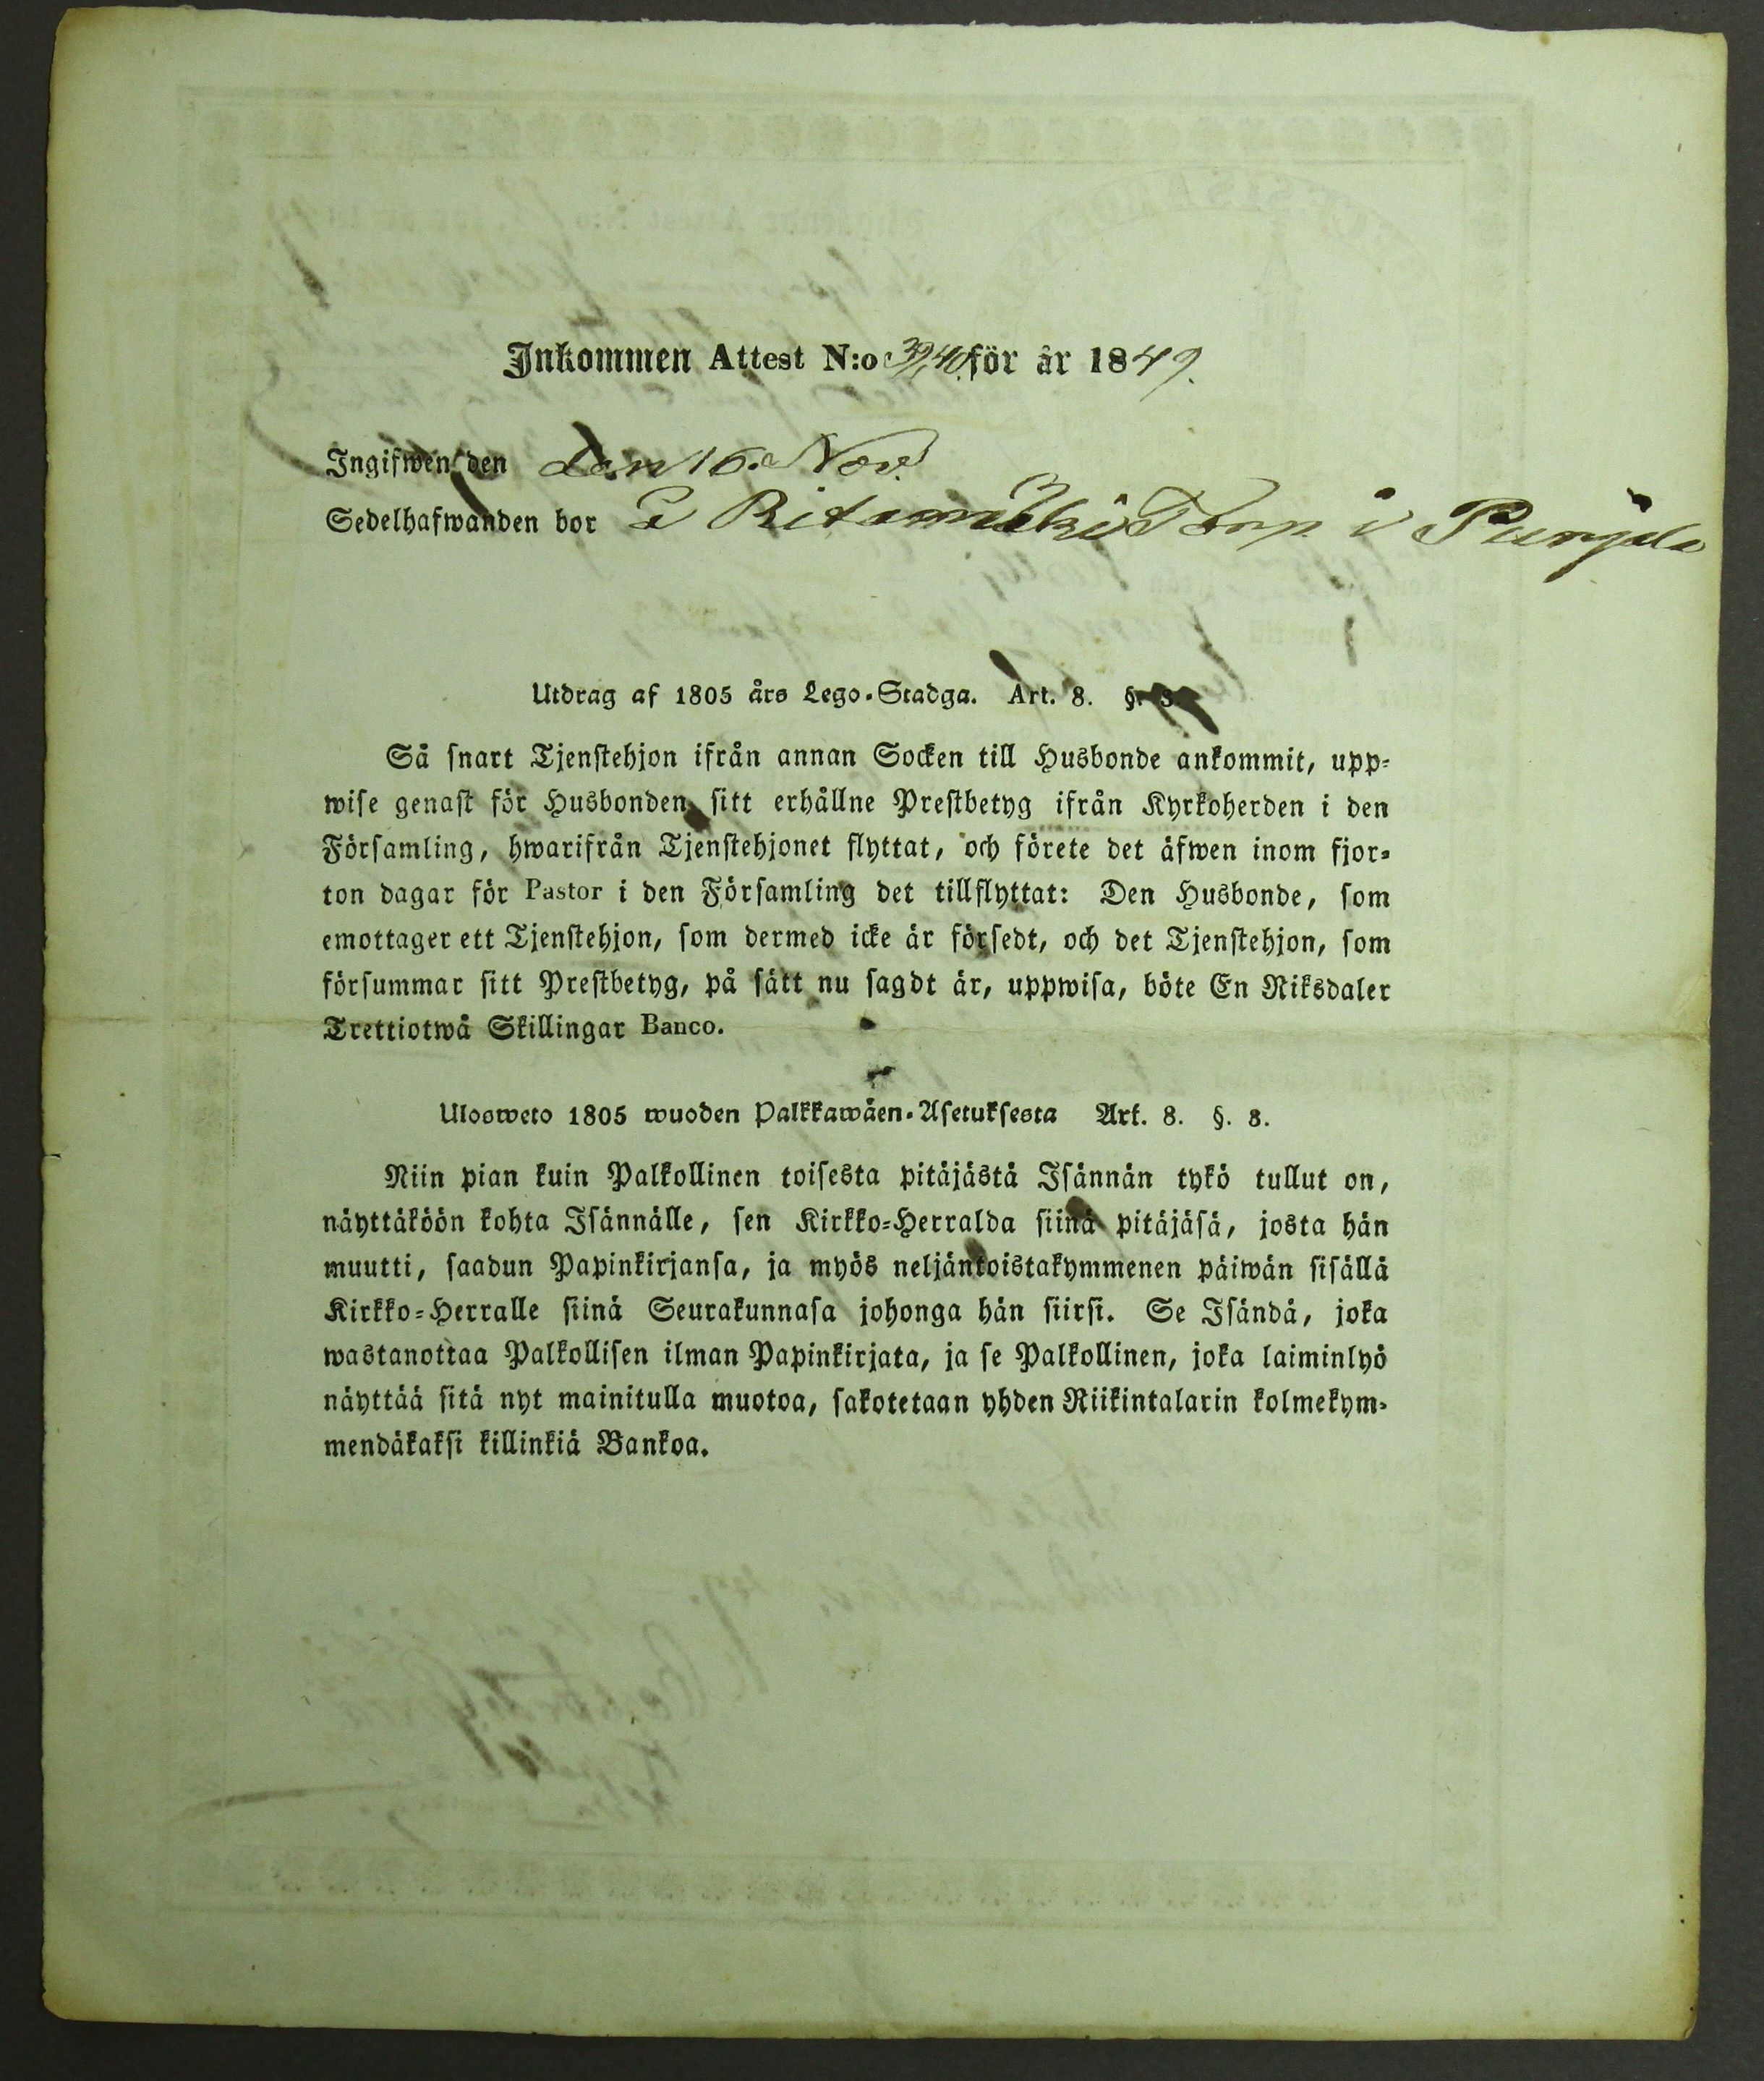 Inkommen Attest N:o 39,40. för år 1849.
Ingifwen den den 16. Nov.
Sedelhafwanden bor å Ritamäki Torp i Purjala
Utdrag af 1805 års Lego-Stadga. Art. 8. §. 3.
Så snart Tjenstehjon ifrån annan Socken till Husbonde ankommit, upp-
wise genast för Husbonden sitt erhållne Prestbetyg ifrån Kyrkoherden i den
Församling, hwarifrån Tjenstehjonet flyttat, och förete det äfwen inom fjor-
ton dagar för Pastor i den Församling det tillflyttat: Den Husbonde, som
emottager ett Tjenstehjon, som dermed icke är försedt, och det Tjenstehjon, som
försummar sitt Prestbetyg, på sätt nu sagdt är, uppwisa, böte En Riksdaler
Trettiotwå Skillingar Banco.
Ulosweto 1805 wuoden Palkkawäen-Asetuksesta Art. 8. §. 3.
Niin pian kuin Palkollinen toisesta pitäjästä Isännän tykö tullut on,
näyttäköön kohta Isännälle, sen Kirkko-Herralda siinä pitäjäsä, josta hän
muutti, saadun Papinkirjansa, ja myös neljäntoistakymmenen päiwän sisällä
Kirkko-Herralle siinä Seurakunnasa johonga hän siirsi. Se Isändä, joka
wastanottaa Palkollisen ilman Papinkirjata, ja se Palkollinen, joka laiminlyö
näyttää sitä nyt mainitulla muotoa, sakotetaan yhden Riikintalarin kolmekym-
mendäkaksi killinkiä Bankoa.